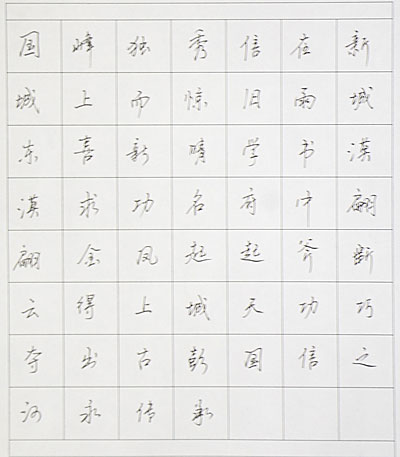 国峰独秀信在新
城上而惊旧雨城
东喜新晴学书漠
漠求功名府中翩
翩金凤起起斧断
云得上城天功巧
夺出古彭国信之
河永传承